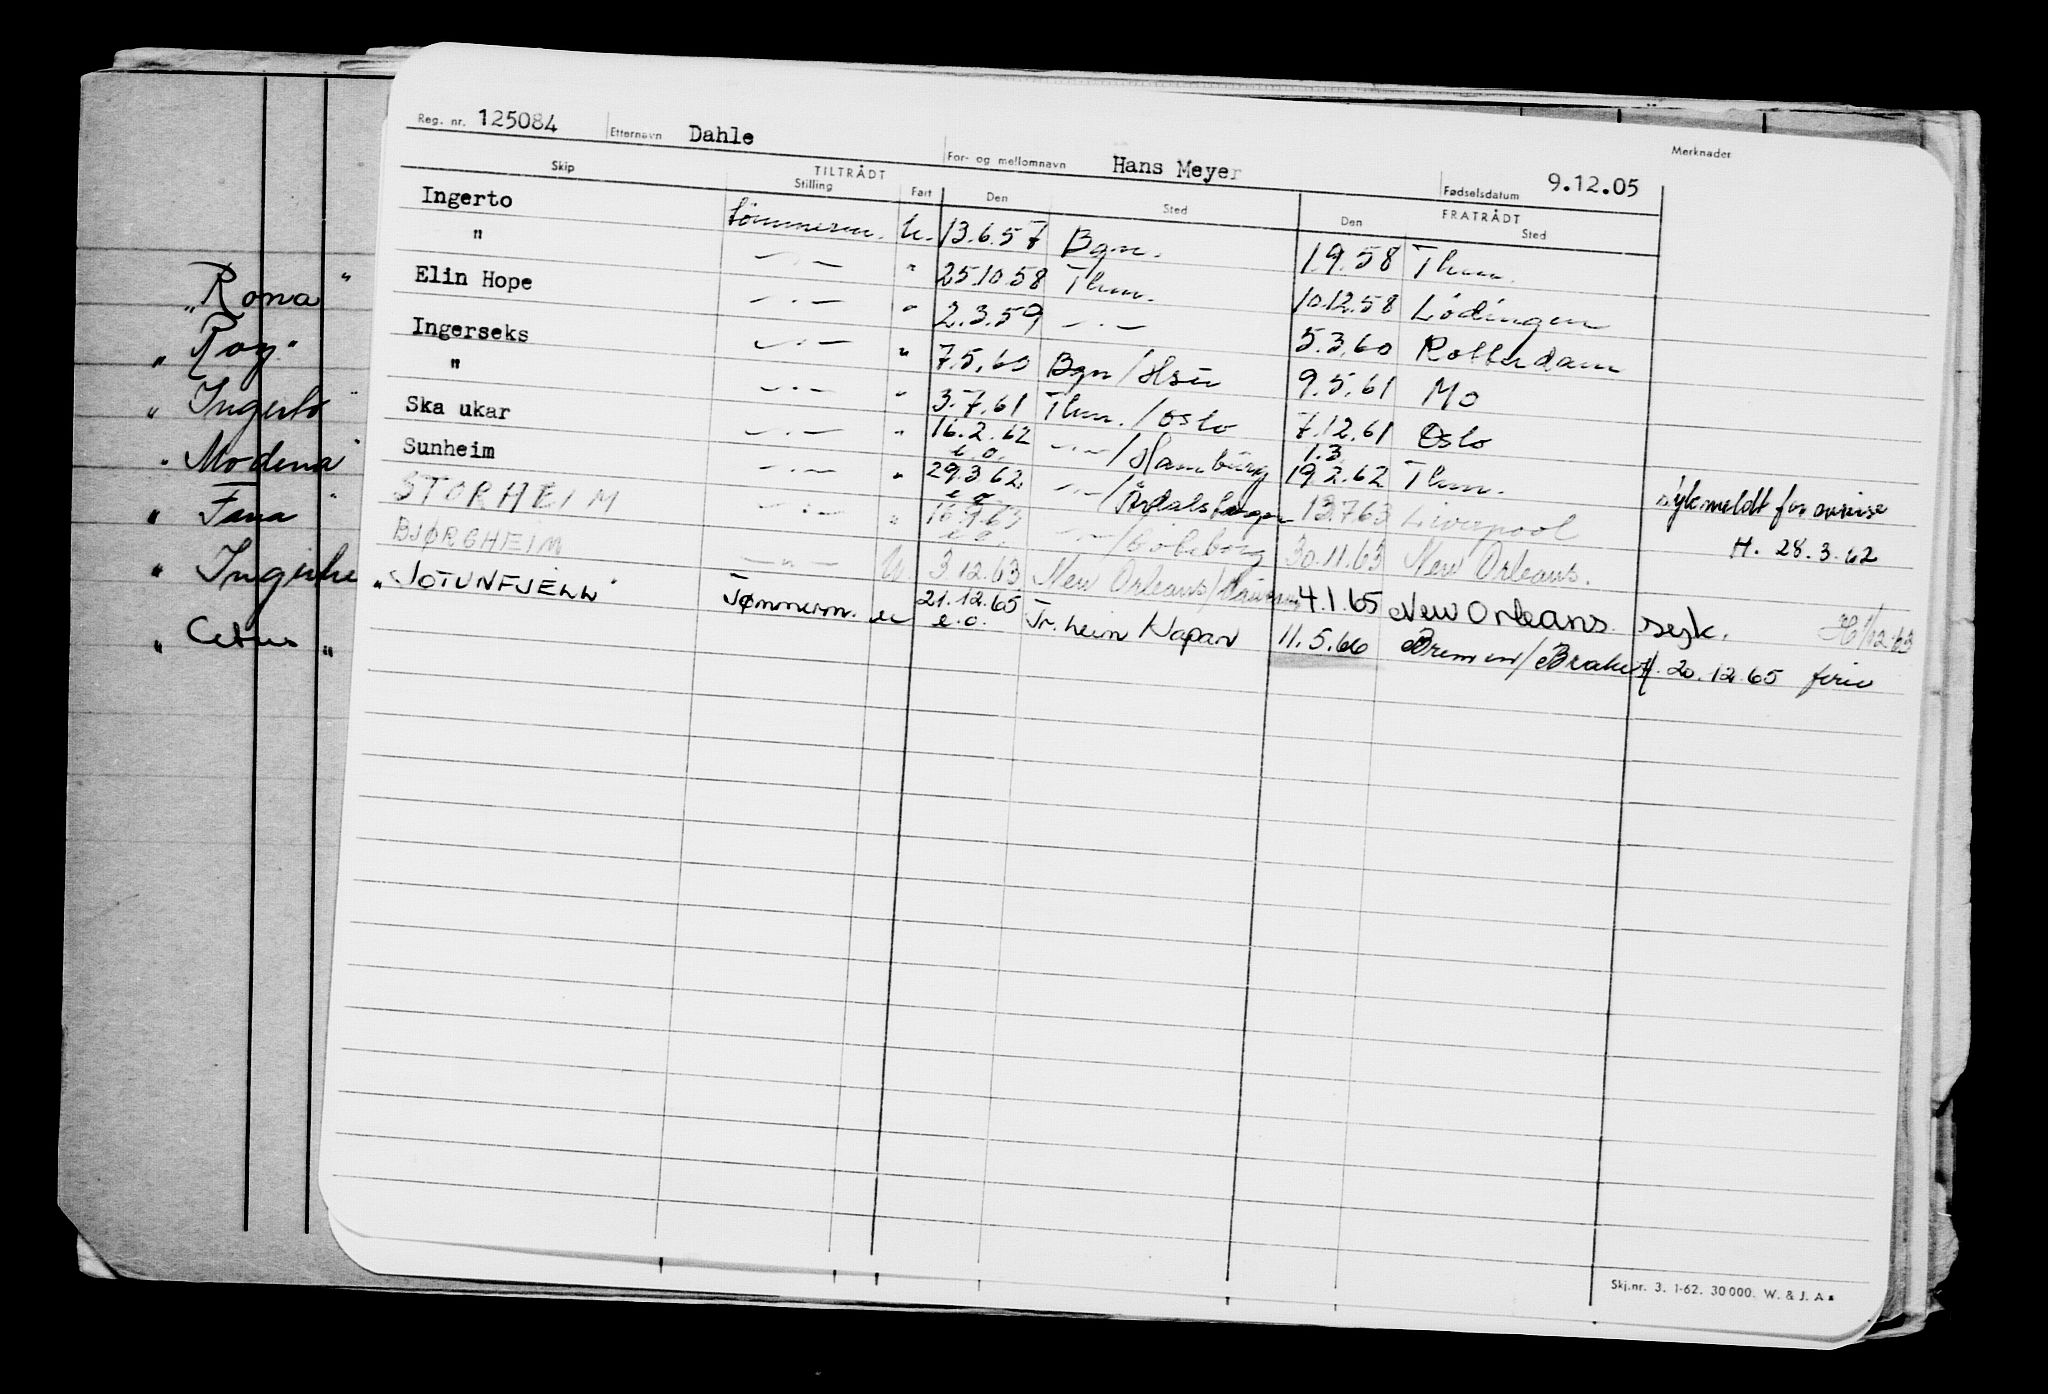 Reg. nr. 125084 Etternavn Dahle For- og mellomnavn Hans Meyer Fødselsdatum 9.12.05 Merknader
TILTRÅDT FRATRÅDT
Skip Stilling Fart Den Sted Den Sted
Ingerto tömmerm. U. 13.6.57 Bgn. 1.9.58 Thm.
" —.— " 25.10.58 Thm. 10.12.58 Lödingen
Elin Hope —.— " 2.3.59 —.— 5.3.60 Rotterdam
Ingerseks —.— " 7.5.60 Bgn/Hsu 9.5.61 Mo
" —.— " 3.7.61 Thm./Oslo 7.12.61 Oslo
Ska ukar —.— " 16.2.62 e.o. —.—/Hamburg 1.3. 19.2.62 Thm.
Sunheim —.— " 29.3.62. e.o. —.—/Årdalstangen 13.7.63 Liverpool sykmeldt for avreise
H. 28.3.62
STORHEIM —.— " 16.9.63 e.o. —.—/Göteborg 30.11.63 New Orleans.
BJØRGHEIM —"— U 3.12.63 New Orleans/ 4.1.65 New Orleans. syk. H 1/12-63
"JOTUNFJELL" Tømmerm. u 21.12.65 e.o. Tr.heim/Japan 11.5.66 Bremen/Brake H. 20.12.65 ferie
"Rona"
"Roy"
"Ingerto"
"Modena"
"Fana"
"
"Cetus"
Skj.nr. 3. 1-62. 30000. W. & J. A s